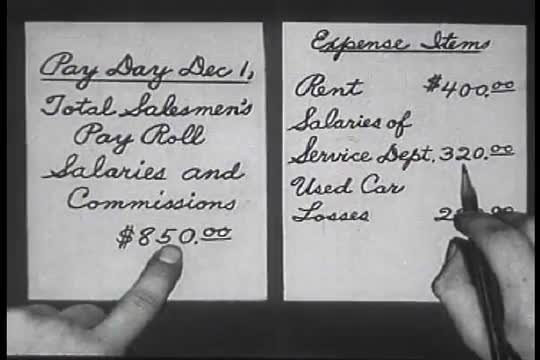 Pay Day Dec 1,
Total Salesmen's
Pay Roll
Salaries and
Commissions
$850.00
Expense Items
Rent $400.00
Salaries of
Service Dept. 320.00
Used Car
Losses